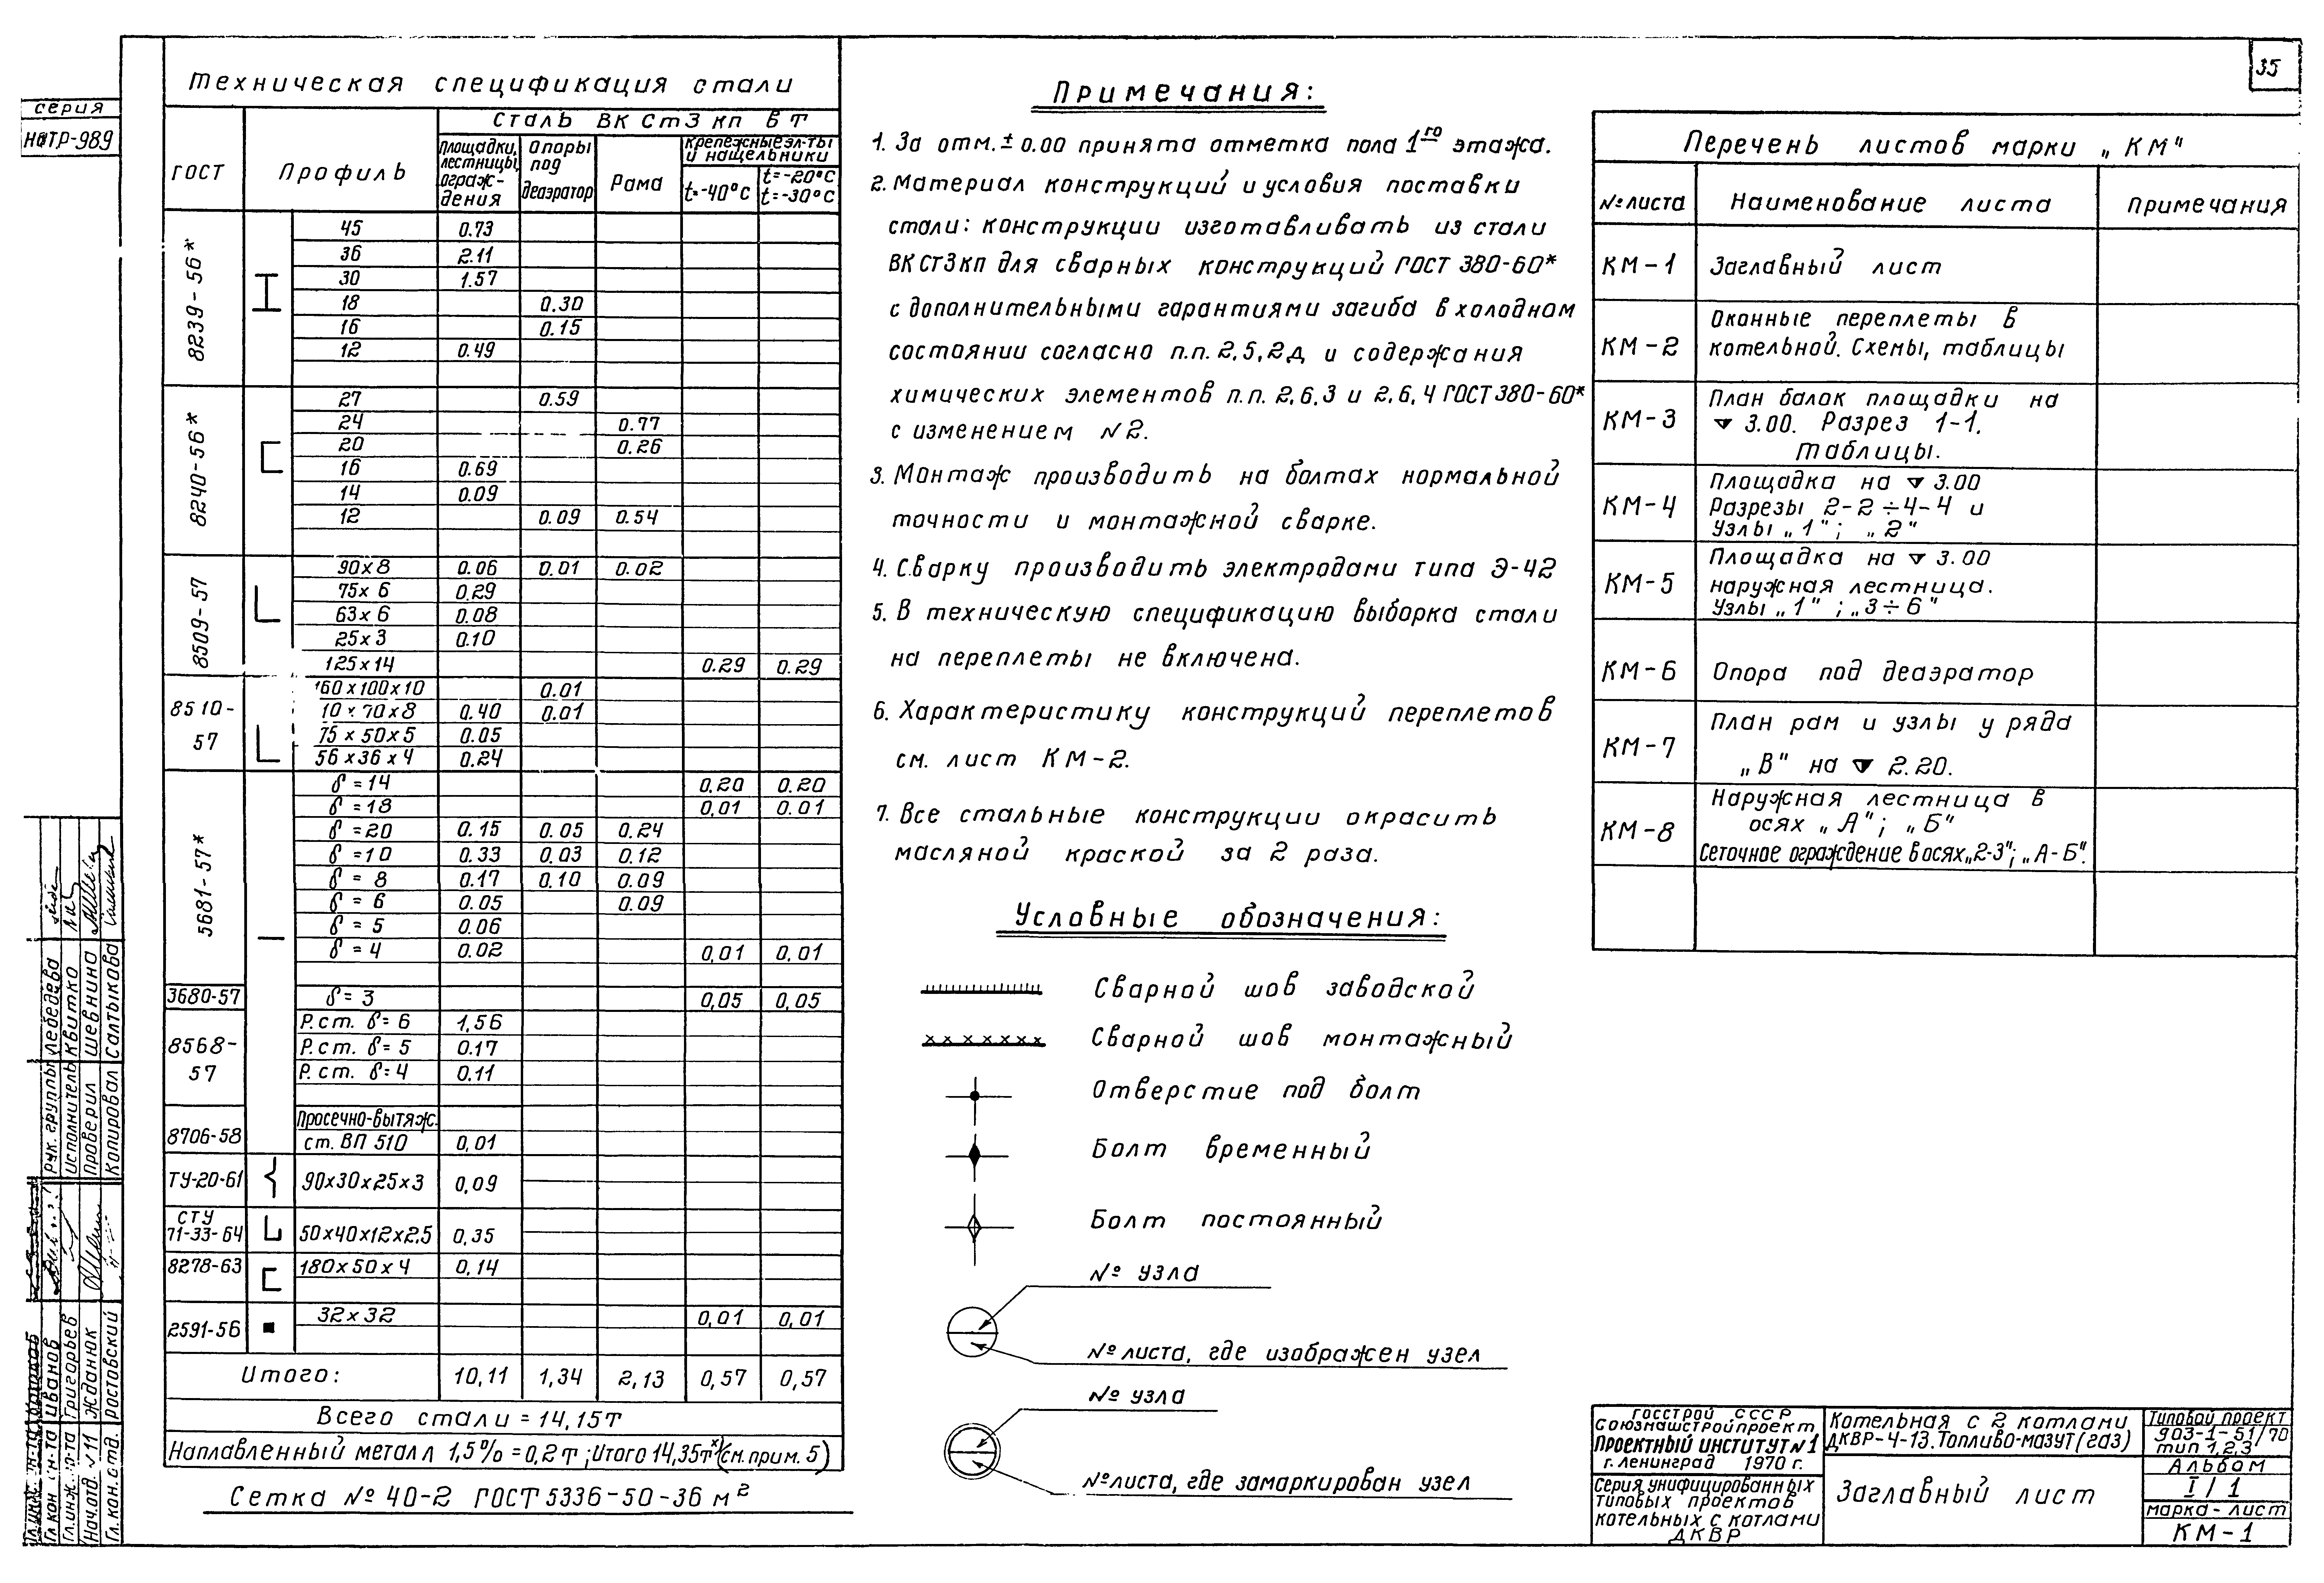 35
серия
НАТР-989
Техническая спецификация стали
ГОСТ
Профиль
Сталь ВК Ст3 кп в т
Площадки, лестницы, ограж-дения
Опоры под деаэратор
Рама
крепежные эл-ты и нащельники
t=-40°С
t=-20°С t=-30°С
8239-56*
45 0.73
36 2.11
30 1.57
18 0.30
16 0.15
12 0.49
8240-56*
27 0.59
24 0.77
20 0.26
16 0.69
14 0.09
12 0.09 0.54
8509-57
90х8 0.06 0.01 0.02
75х6 0.29
63х6 0.08
25х3 0.10
125х14 0.29 0.29
8510-57
160х100х10 0.01
10х70х8 0.40 0.01
75х50х5 0.05
56х36х4 0.24
5681-57*
δ=14 0,20 0.20
δ=18 0,01 0.01
δ=20 0.15 0.05 0.24
δ=10 0.33 0.03 0.12
δ=8 0.17 0.10 0.09
δ=6 0.05 0.09
δ=5 0.06
δ=4 0.02 0,01 0,01
3680-57 δ=3 0,05 0,05
8568-57
Р.ст. δ=6 1,56
Р.ст. δ=5 0.17
Р.ст. δ=4 0.11
8706-58
Просечно-вытяж.
ст. ВП 510 0,01
ТУ-20-61 90х30х25х3 0,09
СТУ 71-33-64 50х40х12х2,5 0,35
8278-63 180х50х4 0,14
2591-56 32х32 0,01 0,01
Итого: 10,11 1,34 2,13 0,57 0,57
Всего стали = 14,15т
Наплавленный металл 1,5% = 0,2т; Итого 14,35тˣ (см. прим. 5)
Сетка №40-2 ГОСТ 5336-50-36 м²
Примечания:
1. За отм. ± 0.00 принята отметка пола 1го этажа.
2. Материал конструкций и условия поставки
стали: конструкции изготавливать из стали
ВК Ст3 кп для сварных конструкций ГОСТ 380-60*
с дополнительными гарантиями загиба в холодном
состоянии согласно п.п. 2,5,2д и содержания
химических элементов п.п. 2,6,3 и 2,6,4 ГОСТ 380-60*
с изменением №2.
3. Монтаж производить на болтах нормальной
точности и монтажной сварке.
4. Сварку производить электродами типа Э-42
5. В техническую спецификацию выборка стали
на переплеты не включена.
6. Характеристику конструкций переплетов
см. лист КМ-2.
7. Все стальные конструкции окрасить
масляной краской за 2 раза.
Условные обозначения:
Сварной шов заводской
Сварной шов монтажный
Отверстие под болт
Болт временный
Болт постоянный
№ узла
№ листа, где изображен узел
№ узла
№ листа, где замаркирован узел
Перечень листов марки „КМ"
№ листа Наименование листа примечания
КМ-1 Заглавный лист
КМ-2 Оконные переплеты в
котельной. Схемы, таблицы
КМ-3 План балок площадки на
3.00. Разрез 1-1.
таблицы.
КМ-4 Площадка на 3.00
Разрезы 2-2÷4-4 и
Узлы „1"; „2"
КМ-5 Площадка на 3.00
наружная лестница.
Узлы „1"; „3÷6"
КМ-6 Опора под деаэратор
КМ-7 План рам и узлы у ряда
„В" на 2.20.
КМ-8 Наружная лестница в
осях „А"; „Б"
Сеточное ограждение в осях „2-3"; „А-Б".
Госстрой СССР
Союзмашстройпроект
Проектный институт №1
г. Ленинград 1970 г.
Серия унифицированных
типовых проектов
котельных с котлами
ДКВР
Котельная с 2 котлами
ДКВР-4-13. Топливо-мазут (газ)
Заглавный лист
Типовой проект
903-1-51/70
тип 1,2,3
Альбом
I/1
марка-лист
КМ-1
рук. группы Лебедева
исполнитель Квитко
Проверил Шевнина
Копировал Салтыкова
Гл. кон. ин-та Иванов
Гл. инж. ин-та Григорьев
Нач. отд. №11 Жданюк
Гл. кон. отд. Ростовский